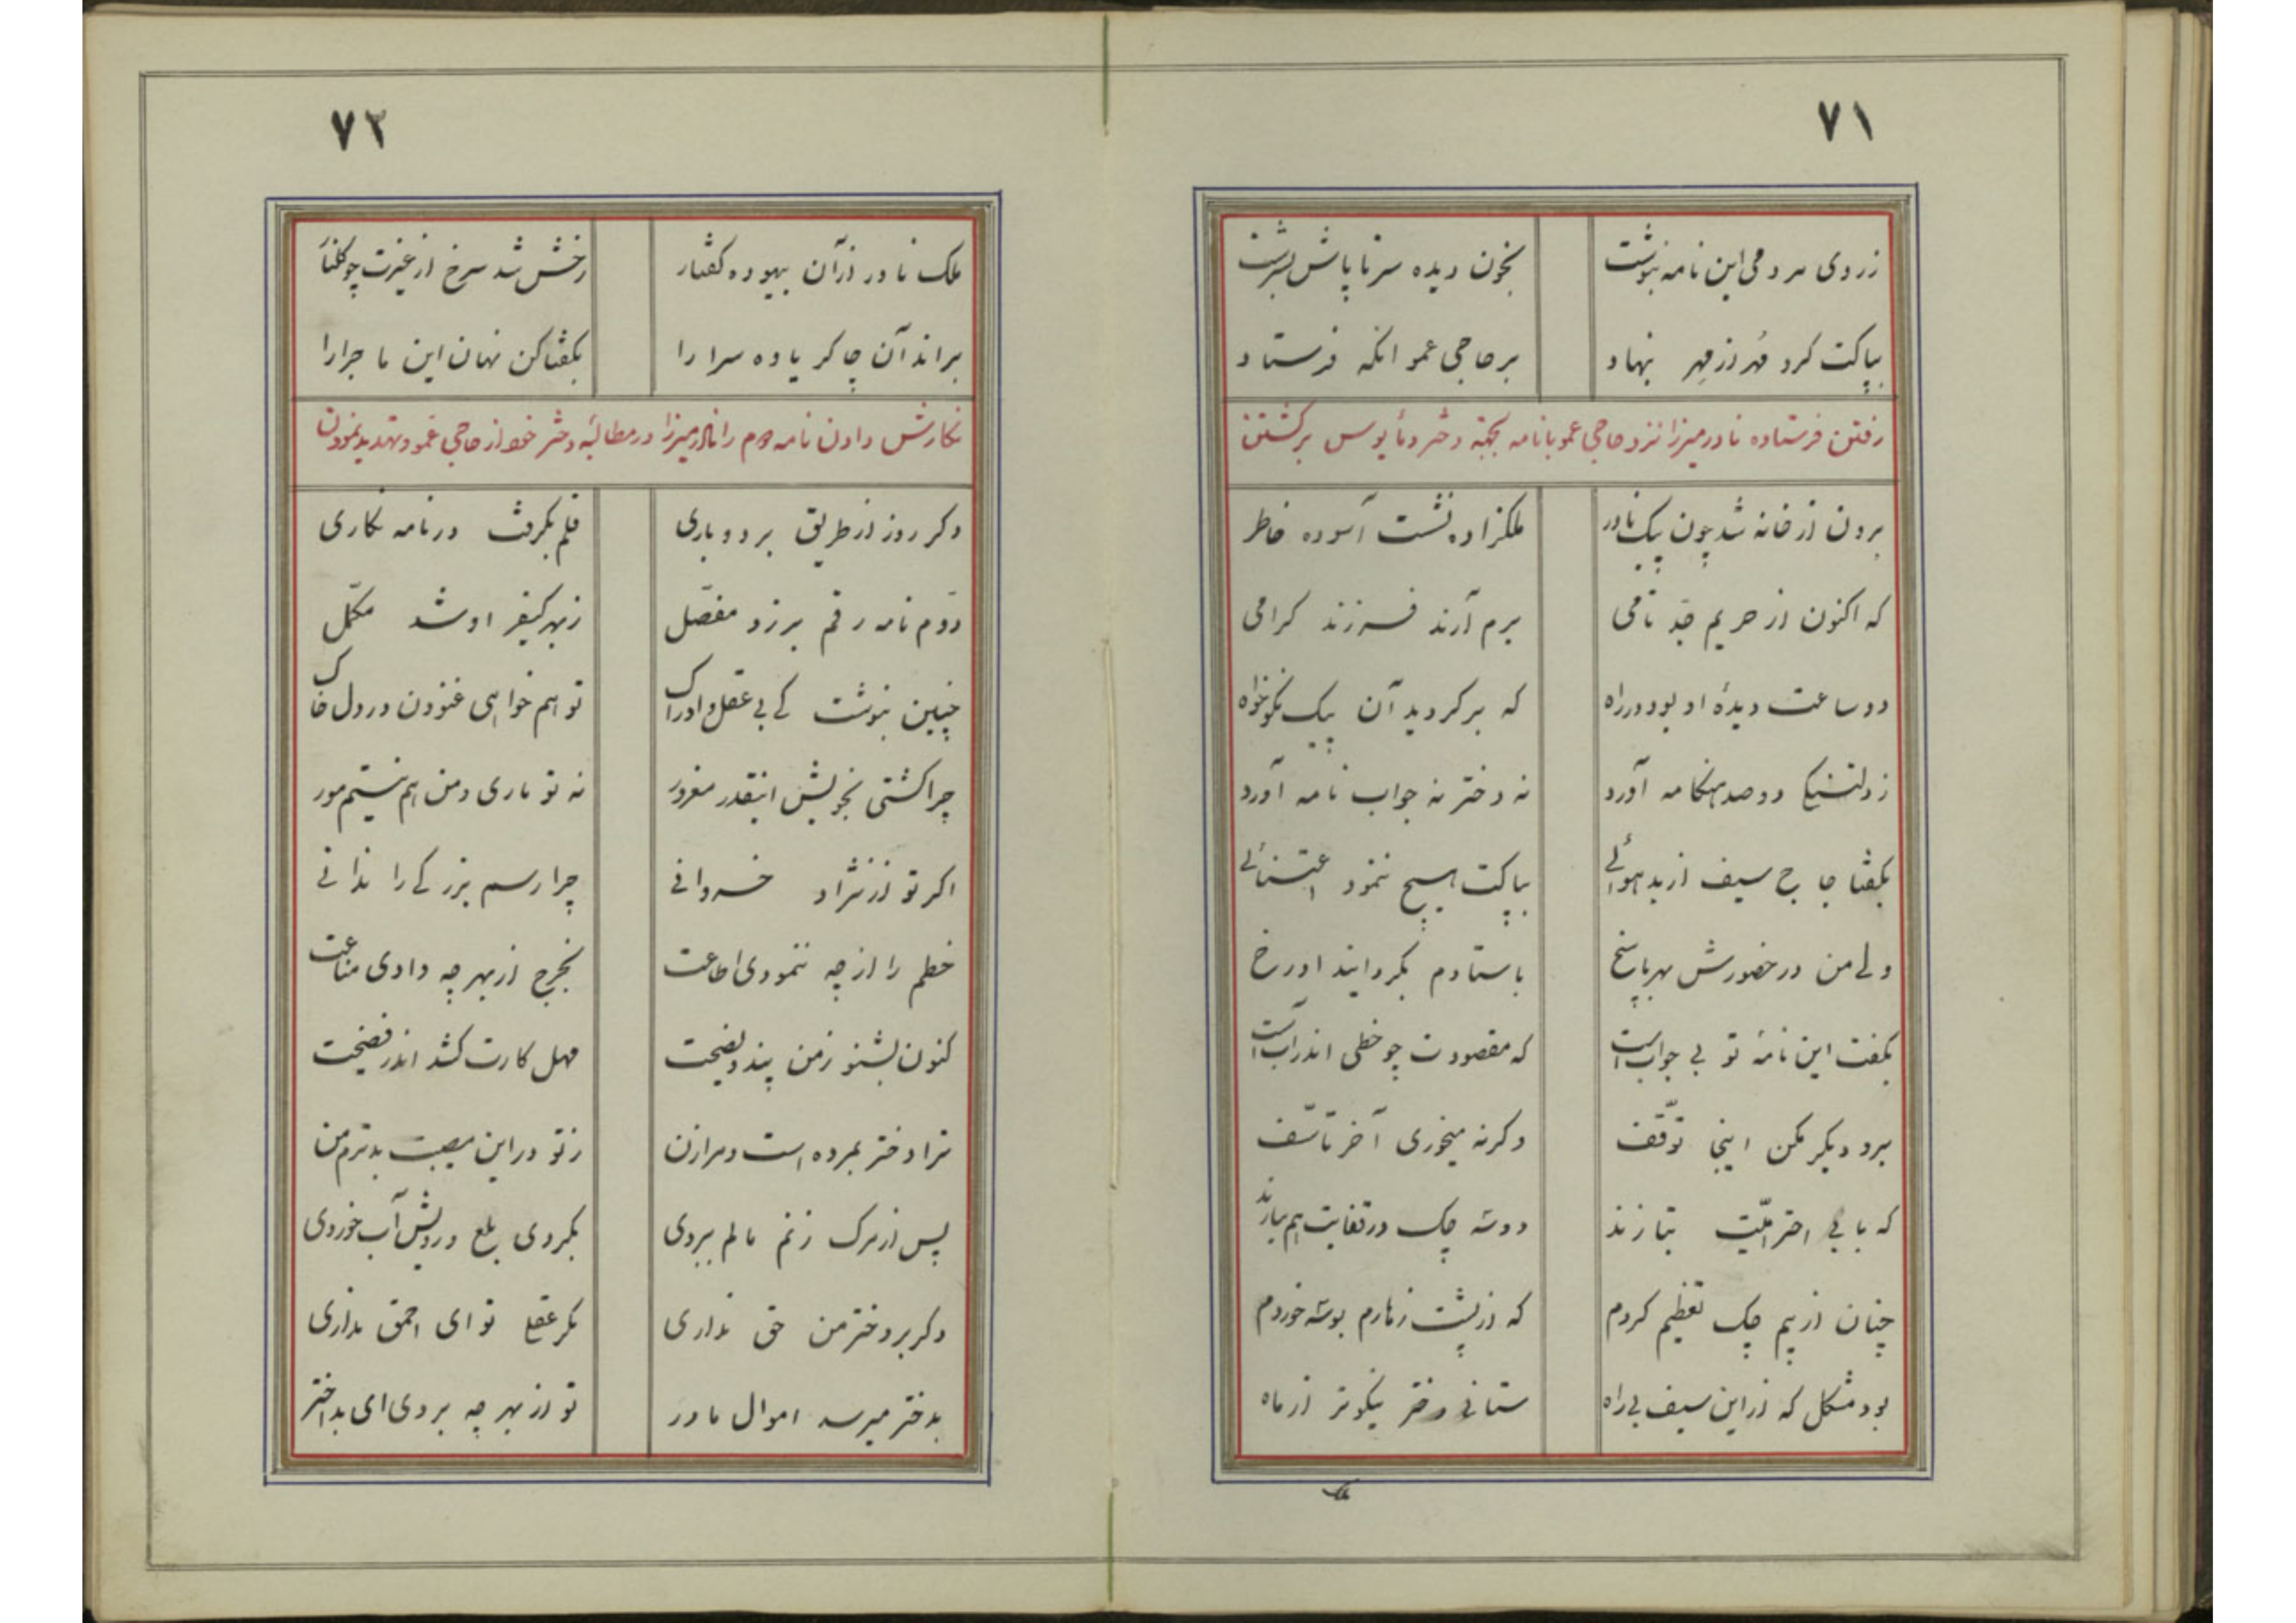 ٧١
زروی مردمی این نامه بنوشت بخون دیده سرتا پاش بسرشت
بپاکت کرد مُهر از مِهر بنهاد برحاجی عمو انکه فرستاد
رفتن فرستاده نادرمیرزا نزد حاجی عمو با نامه بجهته دختر و مأیوس برکشتن
برون از خانه شد چون پیک نادر ملکزاده نشست آسوده خاطر
که اکنون از حریم جدّ نامی برم آرند فرزند کرامی
دو ساعت دیدهٔ او بود در راه که برکردید آن پیک نکوخواه
زدلتنکی دو صد هنکامه آورد نه دختر نه جواب نامه آورد
بکفتا حاج سیف از بد هوائی بپاکت هیچ ننمود اعتنائی
ولی من در حضورش بهر پاسخ باستادم بکردانید او رخ
بکفت این نامهٔ تو بی جوابست که مقصودت چو خطی اندر آبست
برو دیکر مکن اینجا توّقف وکرنه میخوری آخر تاسّف
که با بی احترامیّت بتازند دو سه چک در قفایت هم بیازند
چنان از بیم چک تعظیم کردم که از پشت زهارم بوسه خوردم
بود مشکل که از این سیف بی راه ستانی دختر نیکوتر از ماه
ملک
٧٢
ملک نادر از آن بیهوده کفتار رخش شد سرخ از غیرت چو کلنار
براند آن چاکر یاوه سرا را بکفتا کن نهان این ماجرا را
نکارش دادن نامه دوم را نادرمیرزا در مطالبه دختر خود از حاجی عمو و تهدید نمودن
دکر روز از طریق بردوباری قلم بکرفت در نامه نکاری
دوّم نامه رقم برزد مفصّل زبهر کیفر او شد مکمّل
چنین بنوشت کای بی عقل و ادراک تو هم خواهی غنودن در دل خاک
چرا کشتی بخویش اینقدر مغرور نه تو ماری و من هم نیستم مور
اکر تو از نژاد خسروانی چرا رسم بزرکی را ندانی
خطم را از چه ننمودی اطاعت بخرج از بهر چه دادی مناعت
کنون بشنو زمن پند و نصیحت مهل کارت کشد اندر فضیحت
ترا دختر بمرده است و مرا زن زتو در این مصیبت بدترم من
پس از مرک زنم مالم ببردی بکردی بلع و رویش آب خوردی
وکر بر دختر من حق نداری مکر عقل تو ای احمق نداری
بدختر میرسد اموال مادر تو از بهر چه بردی ای بد اختر